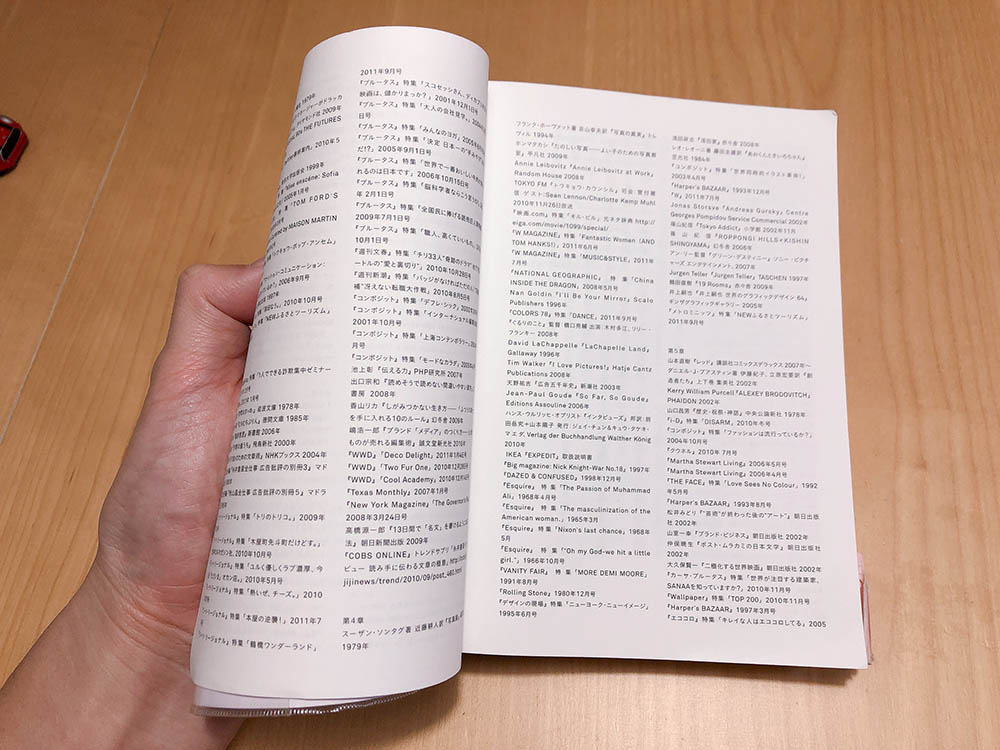 1979年
THE FUTURES
2010年5
1999年
Sofia
2005年1月号
TOM FORD'S
MAISON MARTIN
2006年9月号
1997年
2010年10月号
「NEWふるさとツーリズム」
特集「1人でできる詐欺集中ゼミナー
岩波文庫 1978年
徳間文庫 1985年
新書館 2006年
飛鳥新社 2000年
NHKブックス 2004年
広告批評の別冊3』マドラ
広告批評の別冊5』マドラ
特集「トリのトリコ。」2009年
特集「本屋町先斗町だけどす。」
2010年10月号
特集「ユルく優しくラブ濃厚、今
2010年5月号
特集「熱いぜ、チーズ。」2010
特集「本屋の逆襲！」2011年7
特集「鶴橋ワンダーランド」
2011年9月号
『ブルータス』特集「スコセッシさん、ディカプリオ
映画は、儲かりまっか？」2001年12月1号
『ブルータス』特集「大人の会社見学。」
日号
『ブルータス』特集「みんなのヨガ」2005年
『ブルータス』特集「決定 日本一の
だ!?」2005年9月1号
『ブルータス』特集「世界で一番おいしい
れるのは日本です」2006年10月15日号
『ブルータス』特集「脳科学者ならこう言う
年2月1日号
『ブルータス』特集「全国民に捧げる読書
2009年7月1号
『ブルータス』特集「職人、高くていいもの。」
10月1日号
『週刊文春』特集「チリ33人“奇跡のドラマ”
ートルの“愛と裏切り”」2010年10月28日号
『週刊新潮』特集「バッジがなければただの人
補“冴えない転職大作戦」2010年8月5日号
『コンポジット』特集「デフレ・シック」2002年
『コンポジット』特集「インターナショナル
2001年10月号
『コンポジット』特集「上海コンテンポラリー」
月号
『コンポジット』特集「モードなカラダ」2005年
池上彰『伝える力』PHP研究所 2007年
出口宗和『読めそうで読めない間違いやすい漢字』
書房 2008年
香山リカ『しがみつかない生き方――「ふつうの幸せ」
を手に入れる10のルール』幻冬舎 2009年
嶋浩一郎『ブランド「メディア」のつくり方
ものが売れる編集術』誠文堂新光社 2010年
『WWD』「Deco Delight」2011年1月4日号
『WWD』「Two Fur One」2010年12月28日号
『WWD』「Cool Academy」2010年12月14日号
『Texas Monthly』2007年1月号
『New York Magazine』「The Governor's
2008年3月24日号
高橋源一郎『13日間で「名文」を書けるようになる方
法』朝日新聞出版 2009年
『COBS ONLINE』トレンドサプリ「糸井重里
ビュー 読み手に伝わる文章の極意」http://
jijinews/trend/2010/09/post_460.html
第4章
スーザン・ソンタグ著 近藤耕人訳『写真論』晶文社
1979年
フランク・ホーヴァット著 吉山幸夫訳『写真の真実』トレ
ヴィル 1994年
ホンマタカシ『たのしい写真――よい子のための写真教
室』平凡社 2009年
Annie Leibovitz『Annie Leibovitz at Work』
Random House 2008年
TOKYO FM「トウキョウ・カウンシル」司会：菅付雅
信 ゲスト：Sean Lennon/Charlotte Kemp Muhl
2010年11月26日放送
『映画.com』特集「キル・ビル」元ネタ辞典 http://
eiga.com/movie/1099/special/
『W MAGAZINE』特集「Fantastic Women (AND
TOM HANKS!)」2011年6月号
『W MAGAZINE』特集「MUSIC&STYLE」2011年
7月号
『NATIONAL GEOGRAPHIC』特集「China
INSIDE THE DRAGON」2008年5月号
Nan Goldin『I'll Be Your Mirror』Scalo
Publishers 1996年
『COLORS 78』特集「DANCE」2011年9月号
『ぐるりのこと』監督：橋口亮輔 出演：木村多江、リリー・
フランキー 2008年
David LaChappelle『LaChapelle Land』
Gallaway 1996年
Tim Walker『I Love Pictures!』Hatje Cantz
Publications 2008年
天野祐吉『広告五千年史』新潮社 2003年
Jean-Paul Goude『So Far, So Goude』
Editions Assouline 2006年
ハンス・ウルリッヒ・オブリスト『インタビューズ』邦訳：前
田岳究+山本陽子 発行：ジェイ・チュン&キュウ・タケキ・
マエダ、Verlag der Buchhandlung Walther König
2010年
IKEA『EXPEDIT』取扱説明書
『Big magazine: Nick Knight-War No.18』1997年
『DAZED & CONFUSED』1998年12月号
『Esquire』特集「The Passion of Muhammad
Ali」1968年4月号
『Esquire』特集「The masculinization of the
American woman.」1965年3月
『Esquire』特集「Nixon's last chance」1968年5
月
『Esquire』特集「"Oh my God-we hit a little
girl."」1966年10月号
『VANITY FAIR』特集「MORE DEMI MOORE」
1991年8月号
『Rolling Stone』1980年12月号
『デザインの現場』特集「ニューヨーク・ニューイメージ」
1995年6月号
浅田政志『浅田家』赤々舎 2008年
レオ・レオーニ著 藤田圭雄訳『あおくんときいろちゃん』
至光社 1984年
『コンポジット』特集「世界同時的イラスト革命！」
2003年4月号
『Harper's BAZAAR』1993年12月号
『W』2011年7月号
Jonas Storsve『Andreas Gursky』Centre
Georges Pompidou Service Commercial 2002年
篠山紀信『Tokyo Addict』小学館 2002年11月
篠山紀信『ROPPONGI HILLS×KISHIN
SHINOYAMA』幻冬舎 2006年
アン・リー監督『グリーン・デスティニー』ソニー・ピクチ
ャーズ エンタテインメント、2007年
Jurgen Teller『Jurgen Teller』TASCHEN 1997年
鶴田直樹『19 Rooms』赤々舎 2009年
井上嗣也『井上嗣也 世界のグラフィックデザイン 64』
ギンザグラフィックギャラリー 2005年
『メトロミニッツ』特集「NEWふるさとツーリズム」
2011年9月号
第5章
山本直樹『レッド』講談社コミックスデラックス 2007年～
ダニエル・J・ブアスティン著 伊藤紀子、立原宏要訳『創
造者たち』上下巻 集英社 2002年
Kerry William Purcell『ALEXEY BRODOVITCH』
PHAIDON 2002年
山口昌男『歴史・祝祭・神話』中央公論社 1978年
『i-D』特集「DISARM」2010年冬号
『コンポジット』特集「ファッションは流行っているか？」
2004年10月号
『クウネル』2010年7月号
『Martha Stewart Living』2006年5月号
『Martha Stewart Living』2006年4月号
『THE FACE』特集「Love Sees No Colour」1992
年5月号
『Harper's BAZAAR』1993年8月号
松井みどり『“芸術”が終わった後の“アート”』朝日出版
社 2002年
山室一幸『ブランド・ビジネス』朝日出版社 2002年
仲俣暁生『ポスト・ムラカミの日本文学』朝日出版社
2002年
大久保賢一『二極化する世界映画』朝日出版社 2002年
『カーサ・ブルータス』特集「世界が注目する建築家、
SANAAを知っていますか？」2010年11月号
『Wallpaper』特集「TOP 200」2010年11月号
『Harper's BAZAAR』1997年3月号
『エココロ』特集「キレイな人はエココロしてる」2005